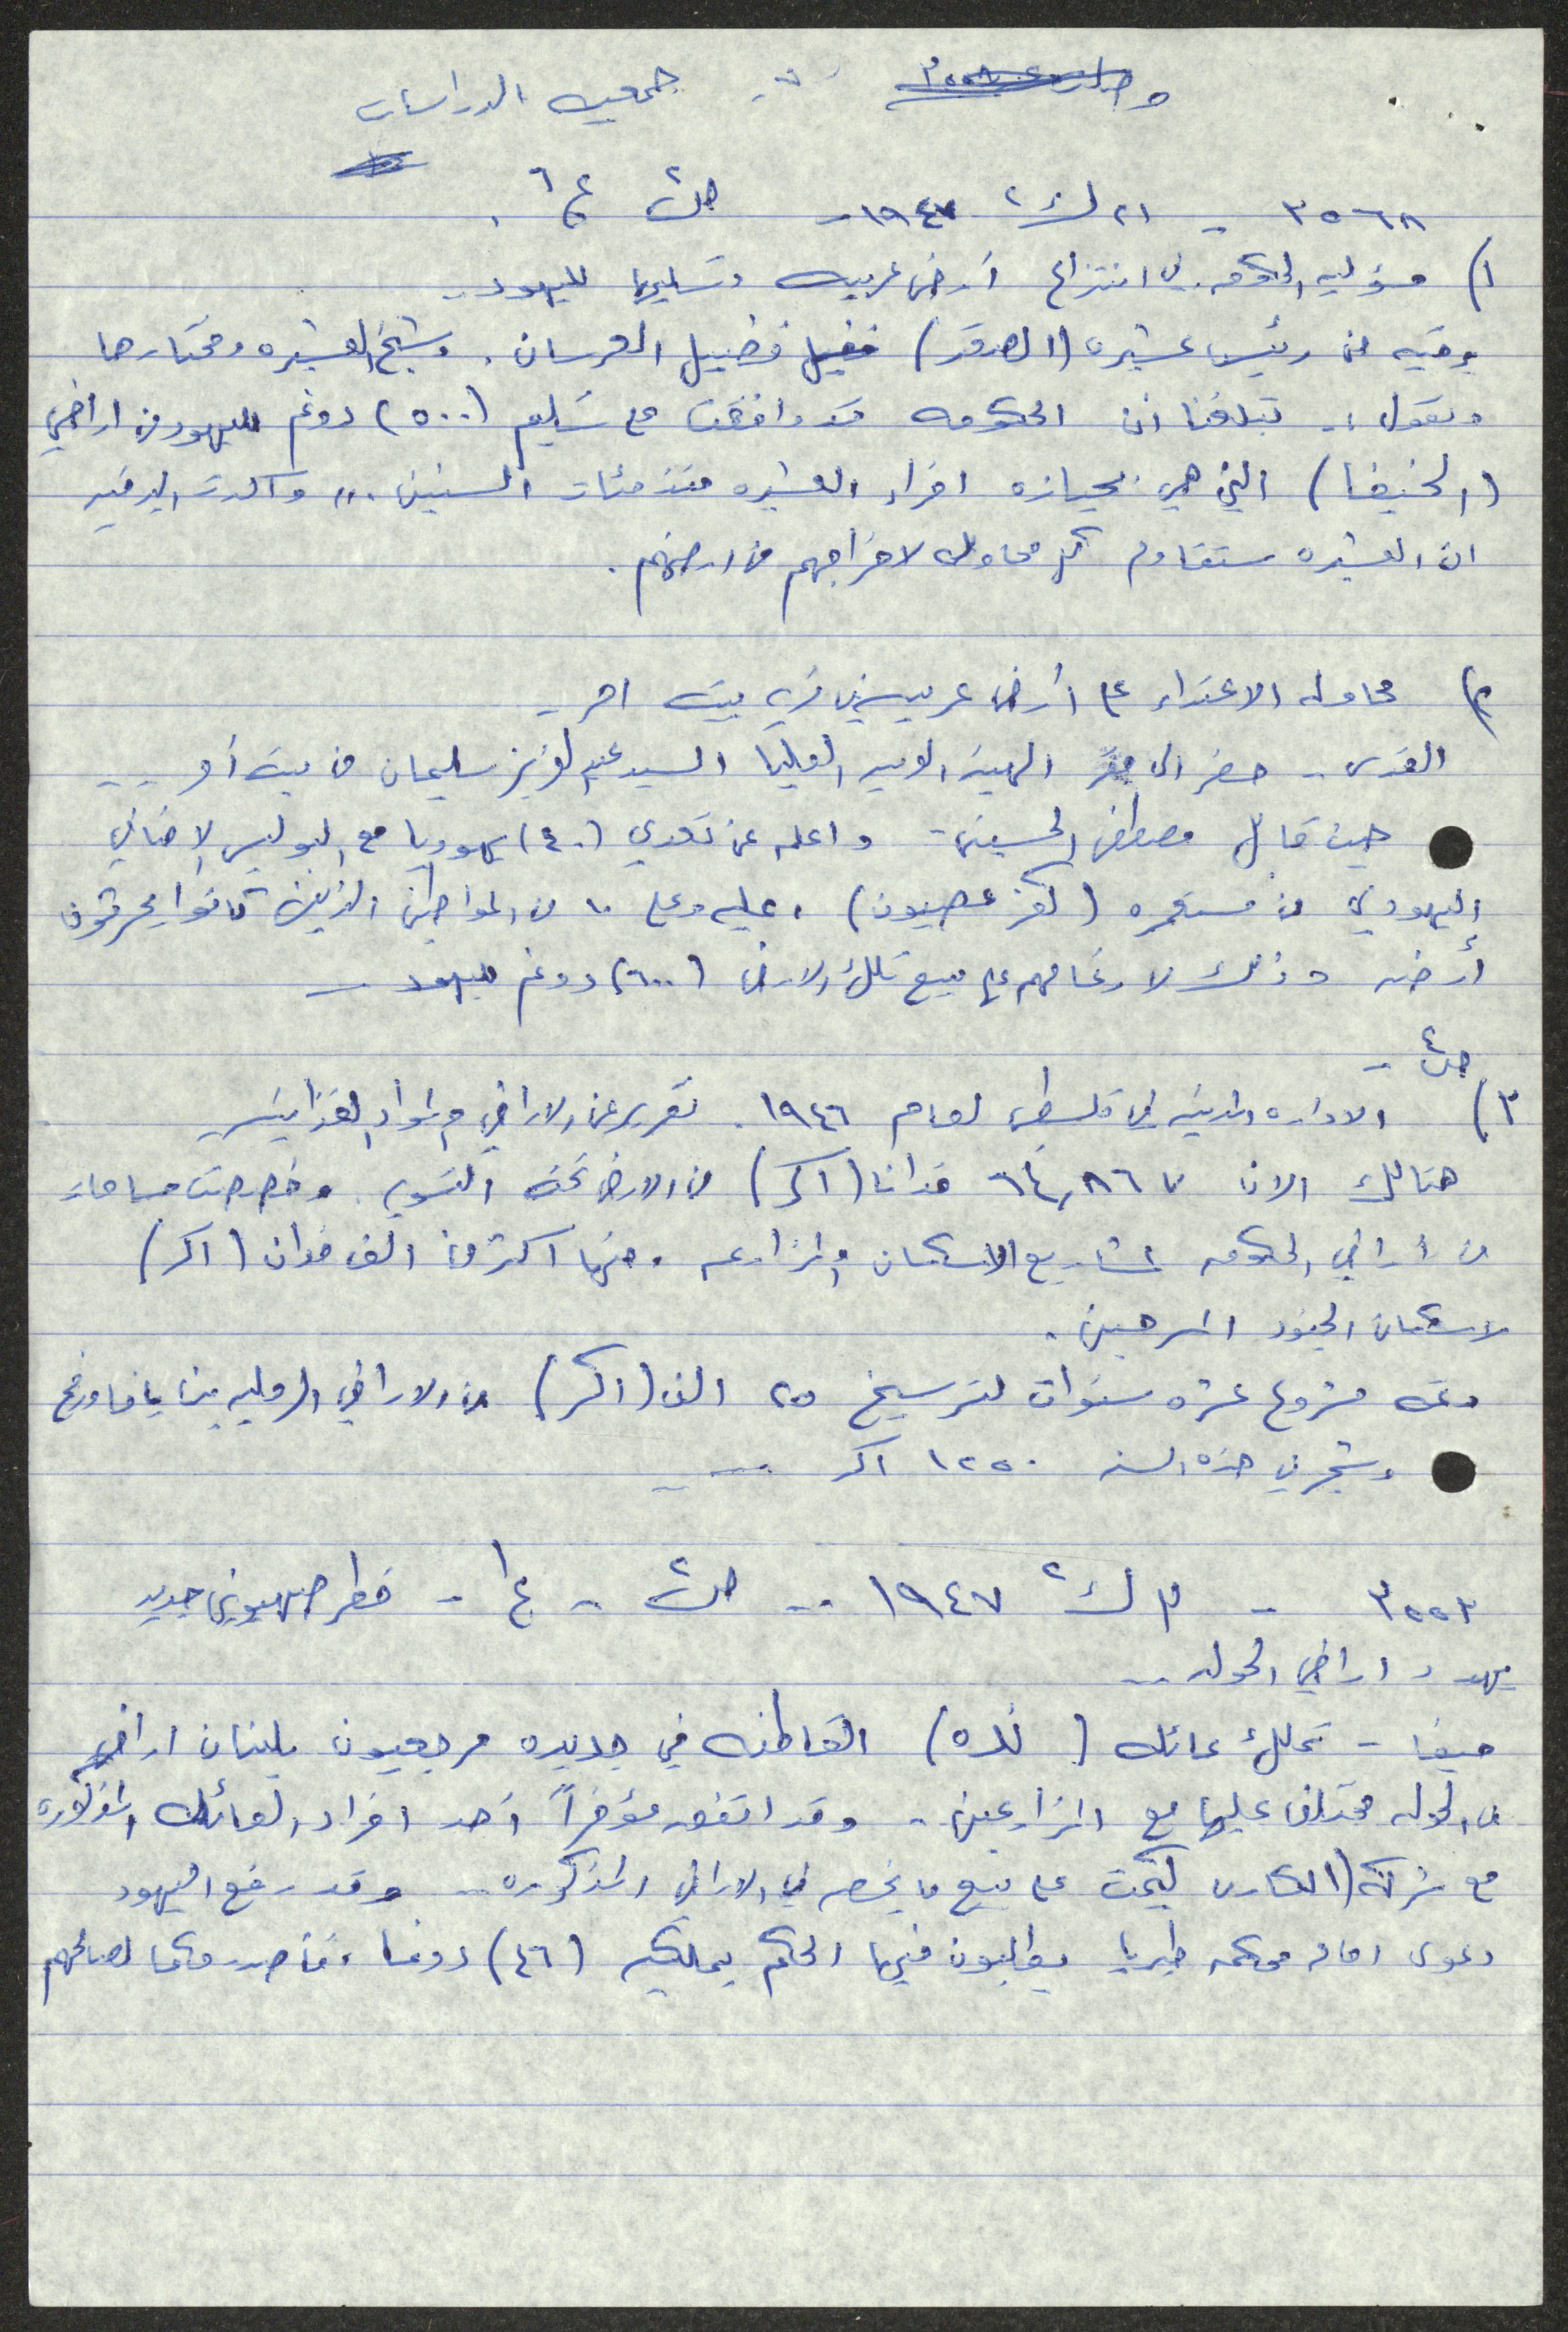 جمعيه الدراسات
٣٥٦٨ - ٢١ ك٢ ١٩٤٧ - ص٢ ع٦ .
١) مسؤليه الحكومه في انتزاع أرض عربيه وتسليمها لليهود ..
برقيه من رئيس عشيره (الصقر) فضيل العرسان . وشيخ العشيره ومختارها
وتقول :- تبلغنا ان الحكومه قد وافقت على تسليم (٥٠٠) دونم لليهود من اراضي
(الخنيفا) التي هي بحيازه افراد العشيره منذ مئات السنين .. واكدت البرقيه
ان العشيره ستقاوم كل محاوله لاخراجهم من ارضهم .
٢) محاوله الاعتداء على أرض عربيه في قريه بيت امر ..
القدس .. حضر الى مقر الهيئه العربيه العليا السيد عبد العزيز سليمان من بيت أمر ..
حيث قابل مصطفى الحسيني - واعلمه عن تعدي (٤٠) يهوديا مع البوليس الاضافي
اليهودي من مستعمره (كفر عصيون) ، عليه وعلى ١٠ من المواطنين الذين كانوا يحرثون
أرضه وذلك لارغامهم على بيع تلك الارض (٦٠٠) دونم لليهود -
ص٤ -
٣) الاداره المدنيه في فلسطين لعام ١٩٤٦ . تقرير عن الاراضي والمواد الغذائيه
هنالك الان ٦٤,٨٦٧ فدانا (اكر) من الارض تحت التسويه . وخصصت مساحات
من أراضي الحكومه لمشاريع الاسكان والمزارعه . منها اكثر من الف فدان (اكر)
لاسكان الجنود المسرحين .
وثمه مشروع عشره سنوات لترسيخ ٢٥ الف (اكر) من الاراضي الرمليه بين يافا ورفح
وشجر في هذه السنه ١٢٥٠ اكر ...
٣٥٥٣ - ٣ ك٢ ١٩٤٧ .. ص٢ - ع١ - خطر صهيوني جديد
يهدد اراضي الحوله ..
حيفا - تملك عائله ( ) القاطنه في جديده مرجعيون بلبنان اراضي
في الحوله مختلف عليها مع المزارعين .. وقد اتفق مؤخراً أحد افراد العائله المذكوره
مع شركه (الكارن كيمت على بيع ما يخصه في الاراضي المذكوره .. وقد رفع اليهود
دعوى امام محكمه طبريا يطالبون فيها الحكم بملكيه (٤٦) دونما ، فأصدر حكما لصالحهم